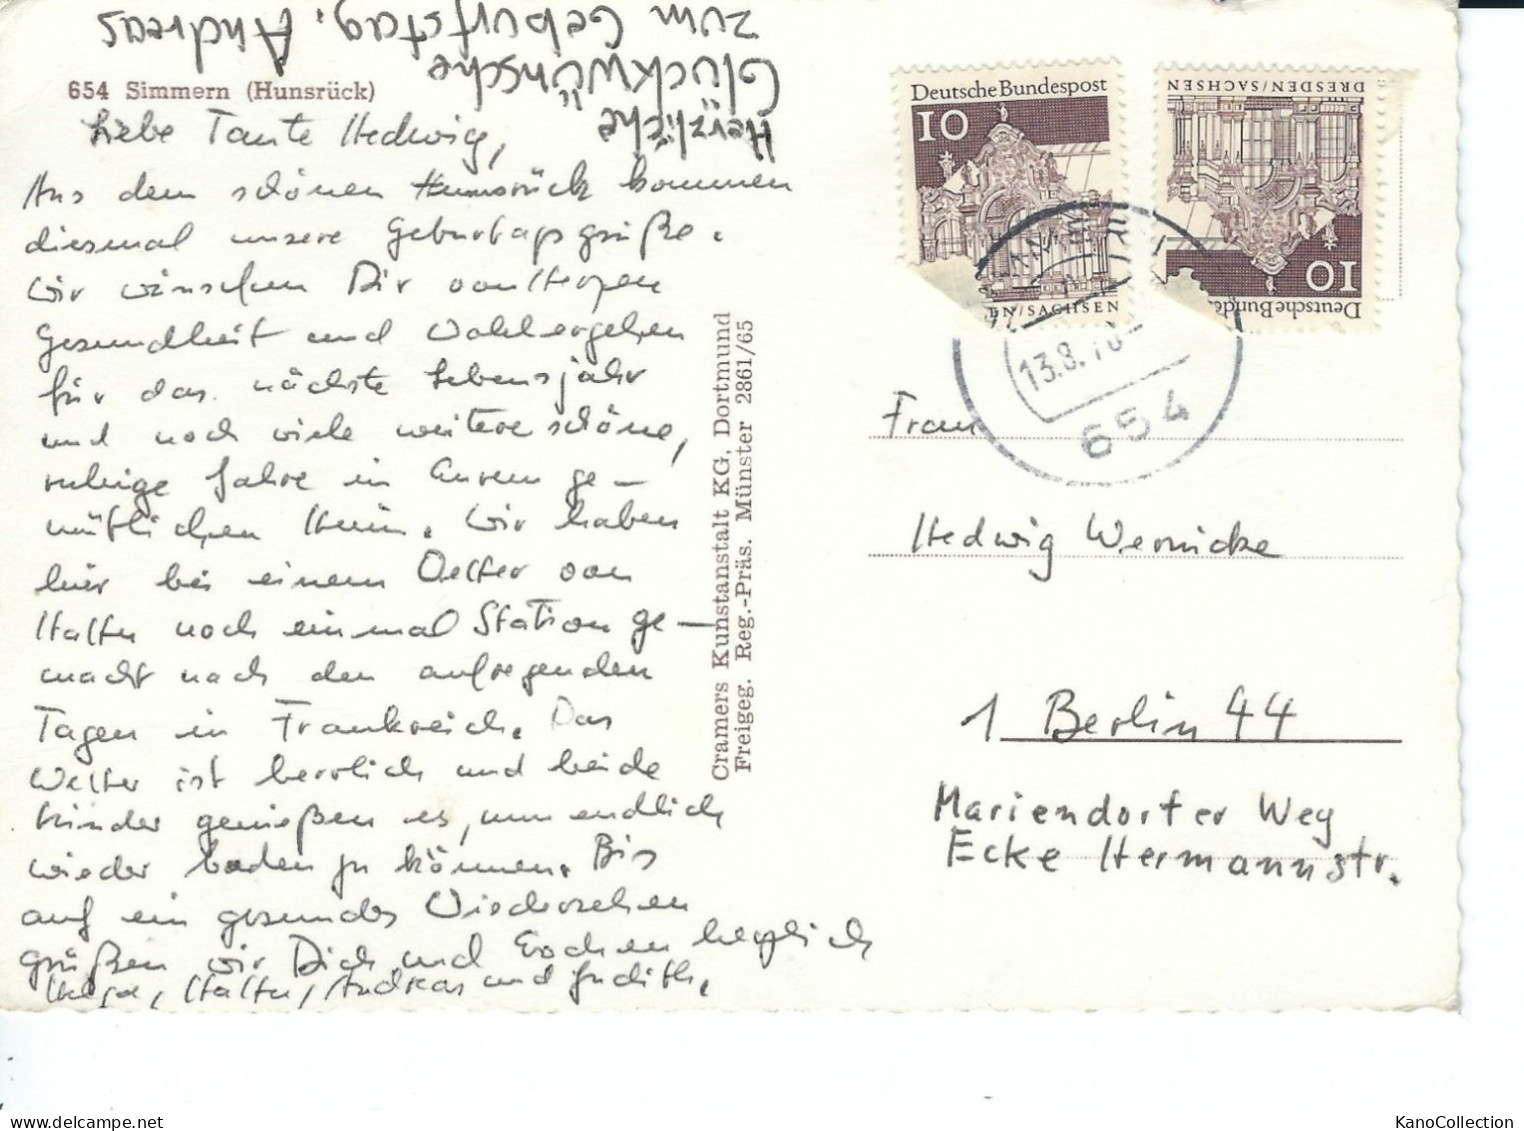 Herzliche
Glückwünsche
zum Geburtstag, Andreas
654 Simmern (Hunsrück)
Liebe Tante Hedwig,
Aus dem schönen Hunsrück kommen
diesmal unsere Geburtstagsgrüße.
Wir wünschen Dir von Herzen
Gesundheit und Wohlergehen
für das nächste Lebensjahr
und noch viele weitere schöne,
ruhige Jahre in Eurem ge-
mütlichen Heim. Wir haben
hier bei einem Vetter von
Walter noch einmal Station ge-
macht nach den aufregenden
Tagen in Frankreich. Das
Wetter ist herrlich und beide
Kinder genießen es, nun endlich
wieder baden zu können. Bis
auf ein gesundes Wiedersehen
grüßen wir Dich und Jochen herzlich
Helga, Walter, Andreas und Judith.
Cramers Kunstanstalt KG, Dortmund
Freigeg. Reg.-Präs. Münster 2861/65
Deutsche Bundespost
10
EN/SACHSEN
DRESDEN/SACHSEN
10
Deutsche Bunde
13.8.70
654
Frau
Hedwig Wernicke
1 Berlin 44
Mariendorfer Weg
Ecke Hermannstr.
KanoCollection